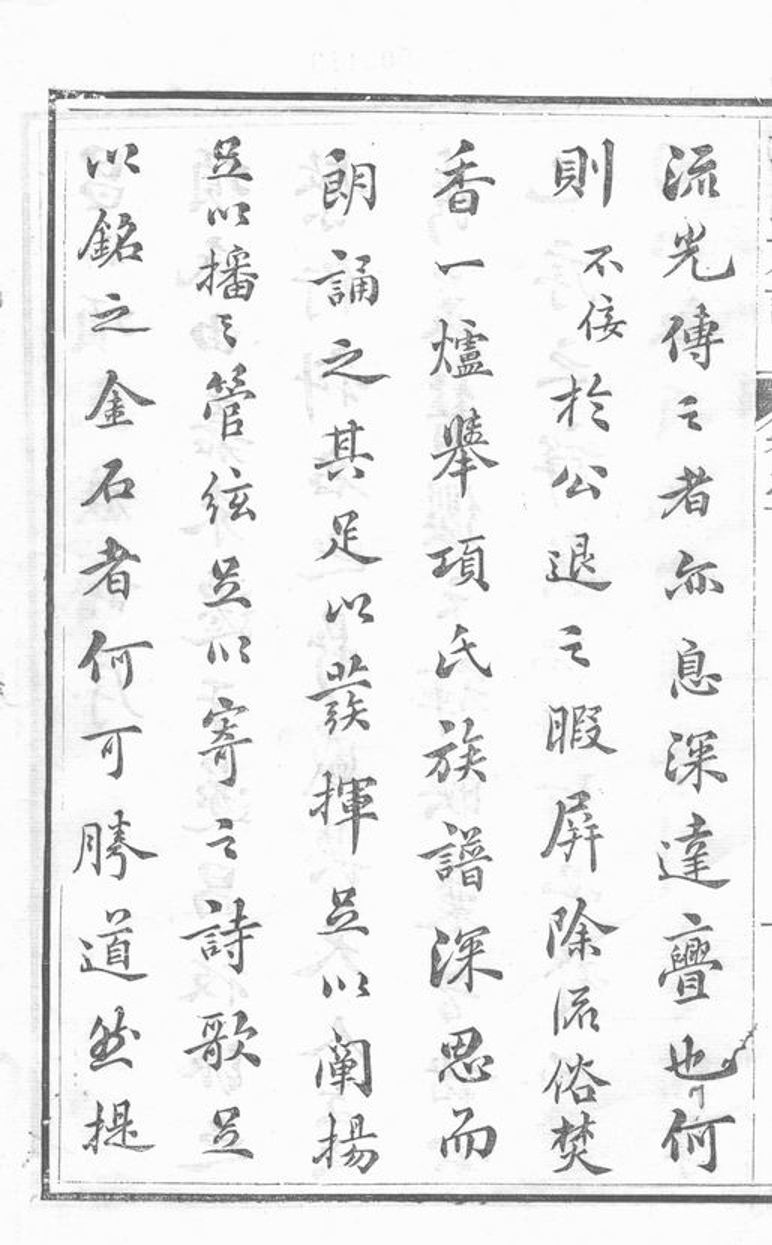 流光傳之者亦息深達亹也何
則不佞於公退之暇屏除流俗焚
香一爐舉項氏族譜深思而
朗誦之其足以發揮足以闡揚
足以播之管絃足以寄之詩歌足
以銘之金石者何可勝道然提